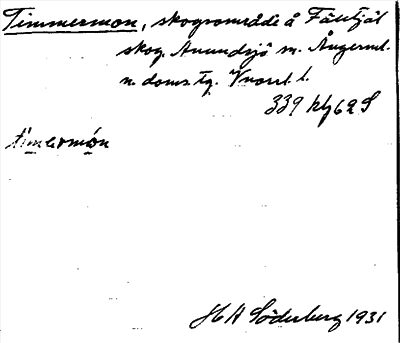 Timmermon, skogsområde å Fälltjäl
skog, Anundsjö sn. Ångerml.
n. doms.tg. Vnorrl. l.
339 klg 62 S
timermón
H A Söderberg 1931